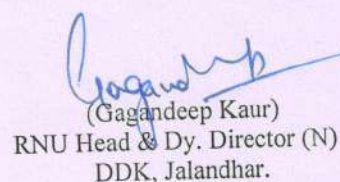 Gagandeep
(Gagandeep Kaur)
RNU Head & Dy. Director (N)
DDK, Jalandhar.